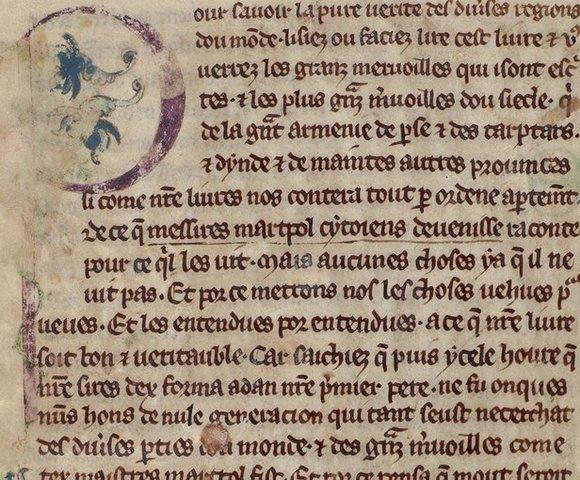 our savoir la pure verite des diuses regions
dou mõde. lisiez ou faciez lire cest liure ⁊ v⁹
uerrez les granz meruoilles qui isont esc̃
tes. ⁊ les plus gñz m̃uoilles dou siecle. q̃
de la gñt armenie de ꝑse ⁊ des tarptars.
⁊ dỳnde ⁊ de maintes autres prouinces
si come nr̃e liures nos contera tout ꝑ ordene aꝑtemt̃.
De ce q̃ messires marcpol cẏtoiens deuenisse raconte
pour ce q̃l les uit. Mais aucunes choses ya q̃l ne
uit pas. Et por ce metrons nos les choses uehues pᵃ
ueues. Et les entendues por entendues. a ce q̃ nr̃e liure
soit bon ⁊ ueritauble. Car saichiez q̃ puis ycele houre q̃
nr̃e sires dex forma adan nr̃e p̃mier pere. ne fu onques
nũs hons de nule generacion qui tant seust ne cerchat
des diũses ꝑties dou monde. ⁊ des gñz m̃uoilles come
cez maistres marcpol fist. Et por ce pensa q̃ mout seroit